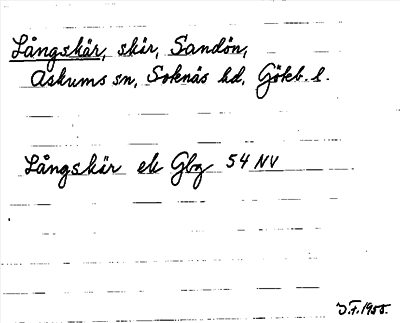 Långskär, skär, Sandön,
Askums sn, Sotenäs hd, Göteb. l.
Långskär ek Gbg 54 NV
J.F. 1955.